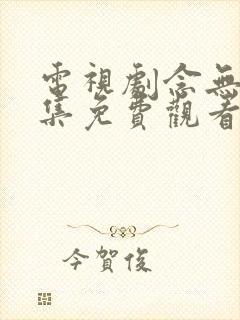 電視劇念無
集免費觀看
今賀俊